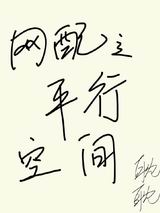 网配之
平行
空间